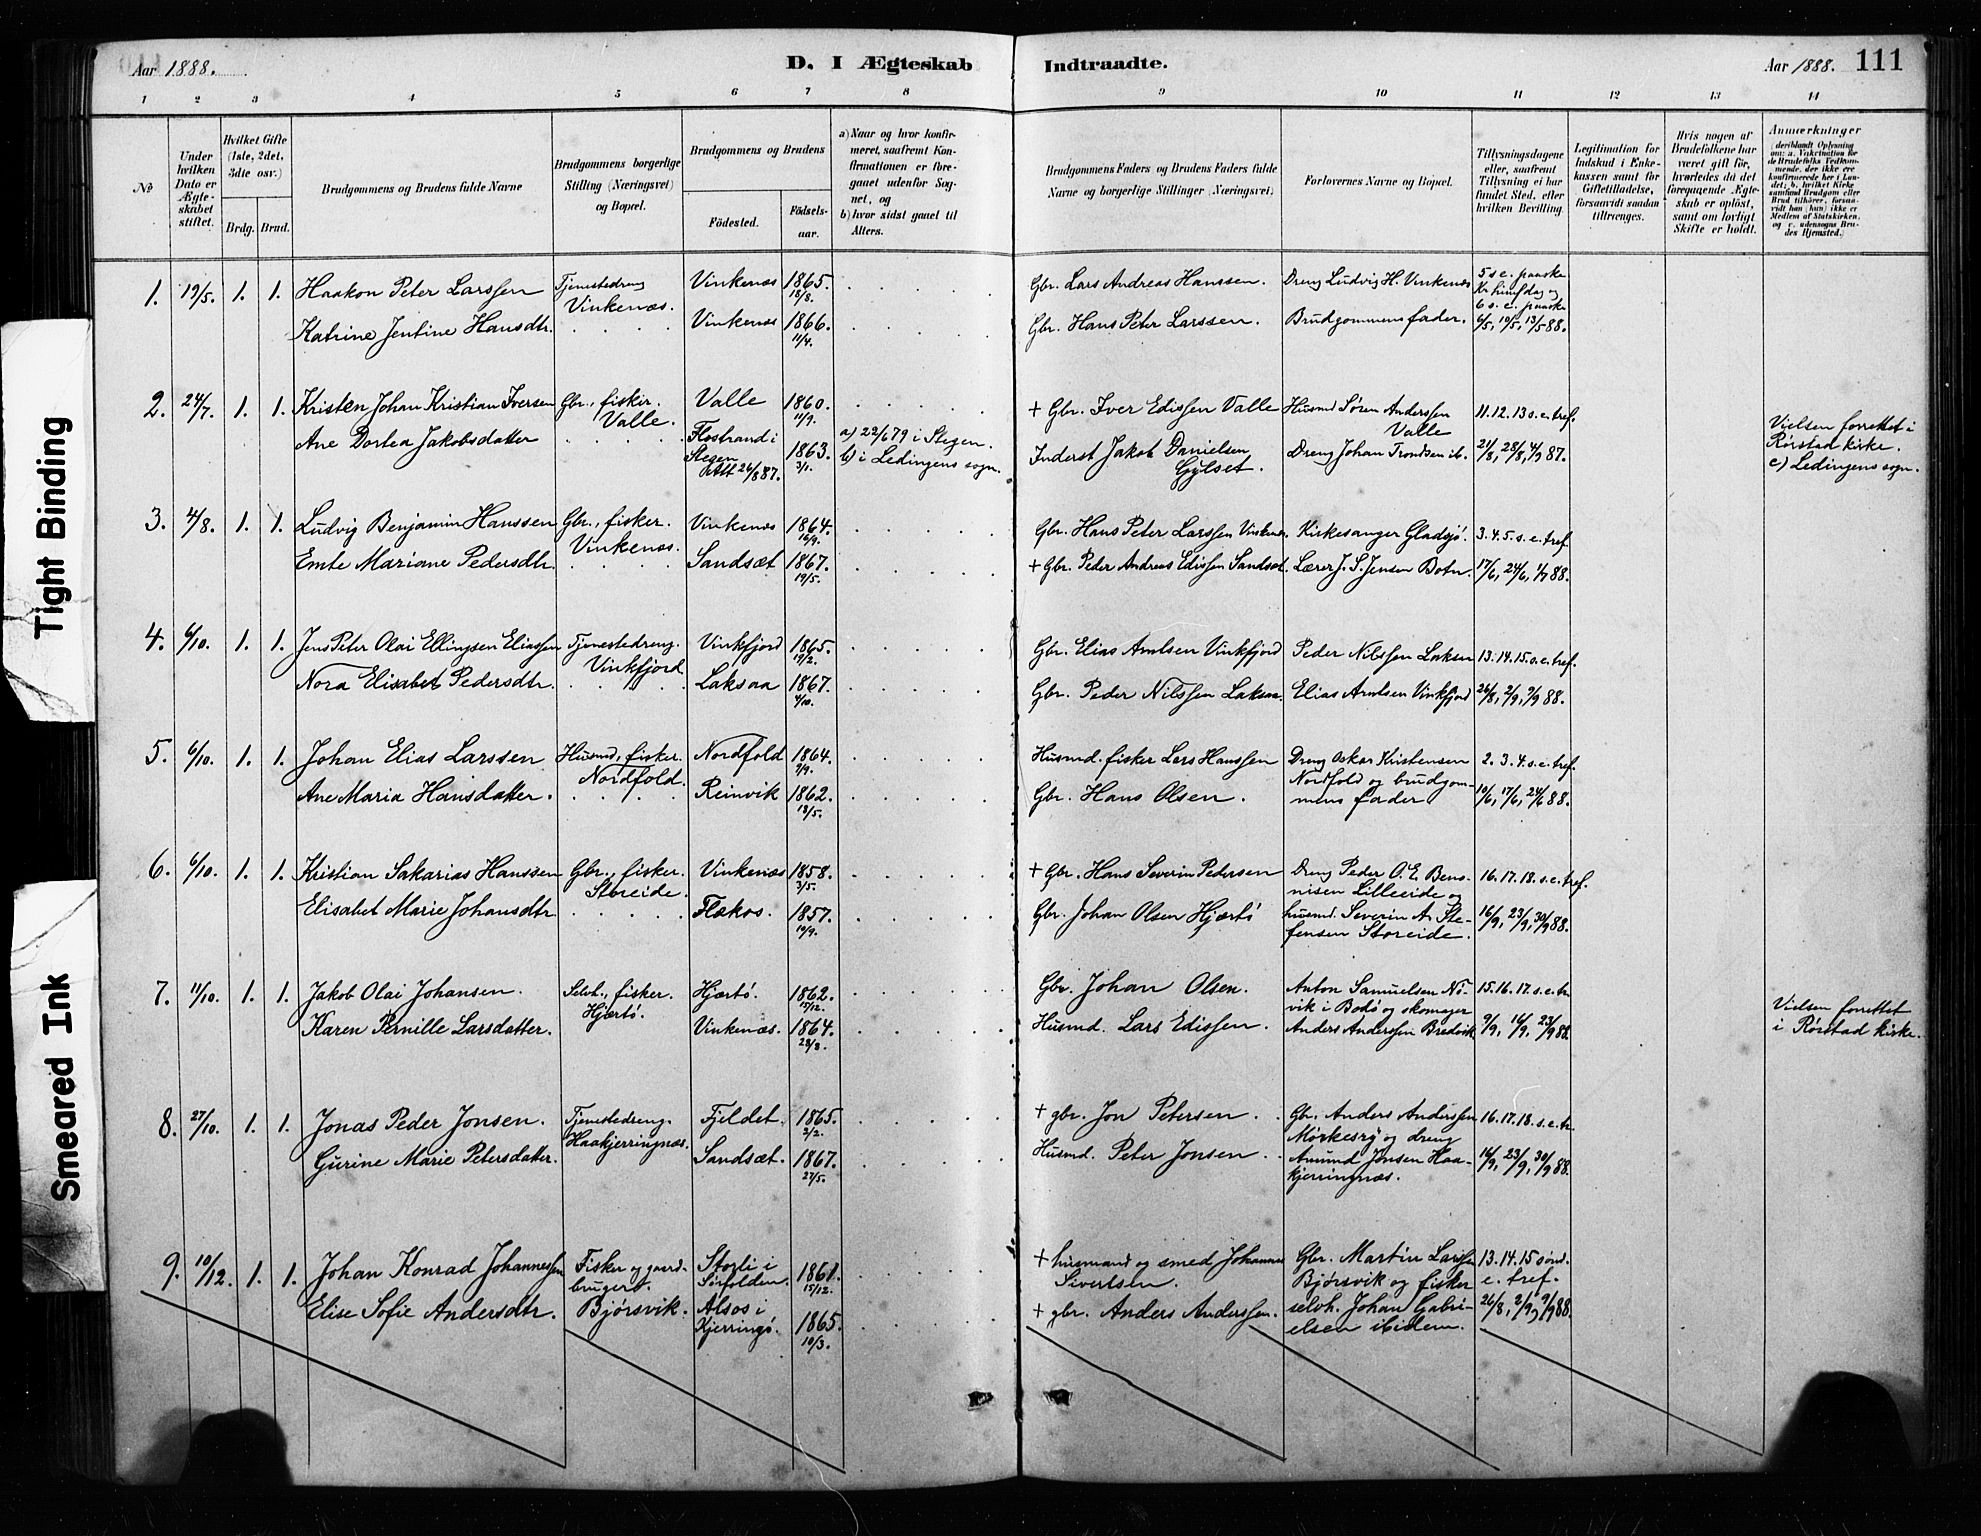 Aar 1888.
D. I Ægteskab Indtraadte.
Aar 1888. 111
1 2 3 4 5 6 7 8 9 10 11 12 13 14
No
Under hvilken Dato er Ægteskabet stiftet.
Hvilket Gifte (1ste, 2det, 3die osv.)
Brdg. Brud.
Brudgommens og Brudens fulde Navne
Brudgommens borgerlige Stilling (Næringsvei) og Bopæl.
Brudgommens og Brudens
Fødested.
Fødselsaar.
a) Naar og hvor konfirmeret, saafremt Konfirmationen er foregaaet udenfor Sognet, og
b) hvor sidst gaaet til Alters.
Brudgommens Faders og Brudens Faders fulde Navne og borgerlige Stillinger (Næringsvei).
Forlovernes Navne og Bopæl.
Tillysningsdagene eller, saafremt Tillysning ei har fundet Sted, efter hvilken Bevilling.
Legitimation for Indskud i Enkekassen samt for Giftetilladelse, forsaavidt saadan tiltrænges.
Hvis nogen af Brudefolkene har været gift før, hvorledes da det foregaaende Ægteskab er opløst, samt om lovligt Skifte er holdt.
Anmerkninger (deriblandt Oplysning om: a. Vakcination for de Brudefolks Vedkommende, der ikke ere konfirmerede her i Landet; b. hvilket Kirkesamfund Brudgom eller Brud tilhører, forsaavidt han (hun) ikke er Medlem af Statskirken, og c. udensogns Brudes Hjemsted.)
1. 19/5. 1. 1. Haakon Peter Larssen Tjenestedreng Vinkenæs. Vinkenæs 1865. 18/8. Gbr. Lars Andreas Hanssen. Dreng Ludvig H. Vinkenæs 5 s. e. paaske Kr. himfdag og 6 s. e. paaske
Katrine Jentine Hansdtr. Vinkenæs 1866. 11/4. Gbr. Hans Peter Larssen. Brudgommens fader. 6/5, 10/5, 13/5 88.
2. 24/7. 1. 1. Kristen Johan Kristian Iversen Gbr., fisker. Valle. Valle 1860. 11/9. + Gbr. Iver Edissen Valle Husmd Søren Anderssen Valle 11. 12. 13 s. e. tref.
Ane Dortea Jakobsdatter Flostrand i Stegen Att 26/8 87. 1863. 3/1. a) 22/6 79 i Stegen. b) i Ledingens sogn. Inderst Jakob Danielsen Gylset. Dreng Johan Trondsen ib. 21/8, 28/8, 4/9 87.
Vielsen forrettet i Rørstad kirke. c) Ledingens sogn.
3. 4/8. 1. 1. Ludvig Benjamin Hanssen Gbr., fisker. Vinkenæs. Vinkenæs 1864. 16/9. Gbr. Hans Peter Larssen Vinkenæs. Kirkesanger Gladsjø. 3. 4. 5. s. e. tref.
Emte Mariane Pedersdtr. Sandsæt 1867. 19/5. + Gbr. Peder Andreas Edissen Sandsæt. Lærer J. S. Jensen Botn. 17/6, 24/6, 1/7 88.
4. 6/10. 1. 1. Jens Peter Olai Ellingsen Eliassen Tjenestedreng. Vinkfjord Vinkfjord 1865. 19/2. Gbr. Elias Arntsen Vinkfjord Peder Nilssen Laksaa 13. 14. 15. s. e. tref.
Nora Elisabet Pedersdtr. Laksaa 1867. 4/10. Gbr. Peder Nilssen Laksaa. Elias Arntsen Vinkfjord 26/8, 2/9, 9/9 88.
5. 6/10. 1. 1. Johan Elias Larssen Husmd, fisker. Nordfold. Nordfold 1864. 9/9. Husmd. fisker Lars Hanssen Dreng Oskar Kristensen Nordfold og brudgommens fader 2. 3. 4. s. e. tref.
Ane Maria Hansdatter. Reinvik 1862. 18/5. Gbr. Hans Olsen. 10/6, 17/6, 24/6 88.
6. 6/10. 1. 1. Kristian Sakarias Hanssen Gbr., fisker. Storeide. Vinkenæs 1858. 3/5. + Gbr. Hans Severin Pedersen Dreng Peder O. E. Bennisen Lilleeide og 16. 17. 18. s. e. tref.
Elisabet Marie Johansdtr Flakos. 1857. 10/9. Gbr. Johan Olsen Hjærtø husmd. Severin A. Steffensen Storeide. 16/9, 23/9, 30/9 88.
7. 11/10. 1. 1. Jakob Olai Johansen. Selvh., fisker. Hjærtø. Hjærtø. 1862. 15/12. Gbr. Johan Olsen. Anton Samuelsen Nøvik i Bodø og skomager 15. 16. 17. s. e. tr
Karen Pernille Larsdatter. Vinkenæs. 1864. 28/8. Husmd. Lars Edissen. Anders Anderssen Bredvik 9/9, 16/9, 23/9 88.
Vielsen forrettet i Rørstad kirke.
8. 27/10. 1. 1. Jonas Peder Jonsen. Tjenestedreng. Haakjerringnæs. Fjeldet. 1865. 2/2. + gbr. Jon Petersen. Gbr. Anders Anderssen Mørkesry og dreng 16. 17. 18. s. e. tr.
Gurine Marie Petersdatter. Sandsæt. 1867. 27/5. Husmd. Peter Jonsen. Amund Jonsen Haakjerringnæs. 16/9, 23/9, 30/9 88.
9. 10/12. 1. 1. Johan Konrad Johannessen Fisker og gaardbruger. Bjørsvik. Storli i Sørfolden. 1861. 15/12. + husmand og smed Johannes Sivertsen. Gbr. Martin Larssen Bjørsvik og fisker 13. 14. 15 sønd. e. tref.
Elise Sofie Andersdtr. Alsos i Kjerringø. 1865. 10/3. + gbr. Anders Anderssen. selvh. Johan Gabrielsen ibidem. 26/8, 2/9, 9/9 88.
Tight Binding
Smeared Ink